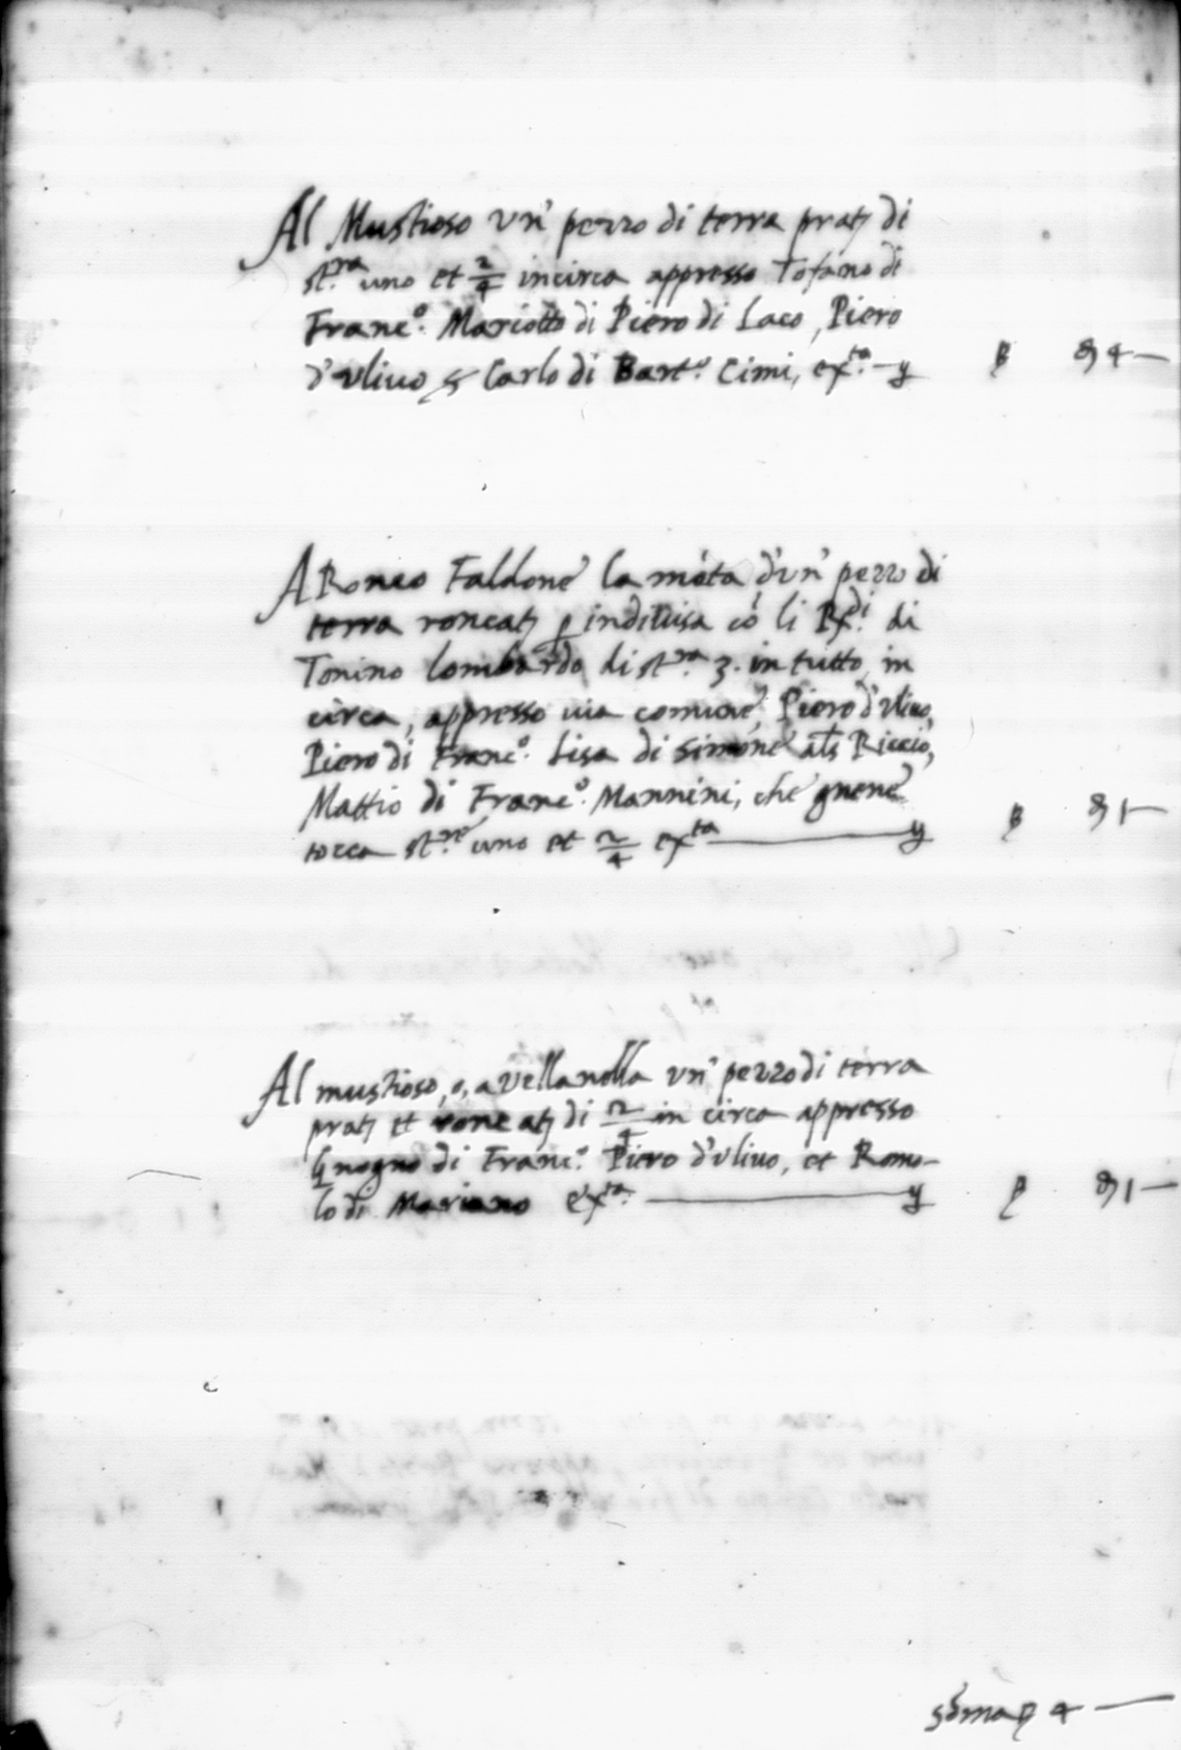 Al Mustioso vn' pezzo di terra prat; di
st.ra uno et 2/4 incirca appresso Tofano di
Franc.o Mariotto di Piero di Laco, Piero
d'Vliuo Carlo di Bart.o Cimi, ex.ta
A Ronco Faldone la metà d'vn' pezzo di
terra roncat; p indiuisa cō li di
Tonino lombardo di st.ra 3. in tutto in
circa, appresso uia comune, Piero d'Vliuo,
Piero di Franc.o Lisa di Simone als Riccio,
Mattio di Franc.o Mannini, che gnene
tocca st.ro uno et 2/4 ex.ta
Al mustioso, o, a Vellanella vn' pezzo di terra
prat; et roncat; di 2/4 in circa appresso
Gnogno di Franc.o Piero d'Vliuo, et Romo-
lo di Mariano ex.ta
sōma 4